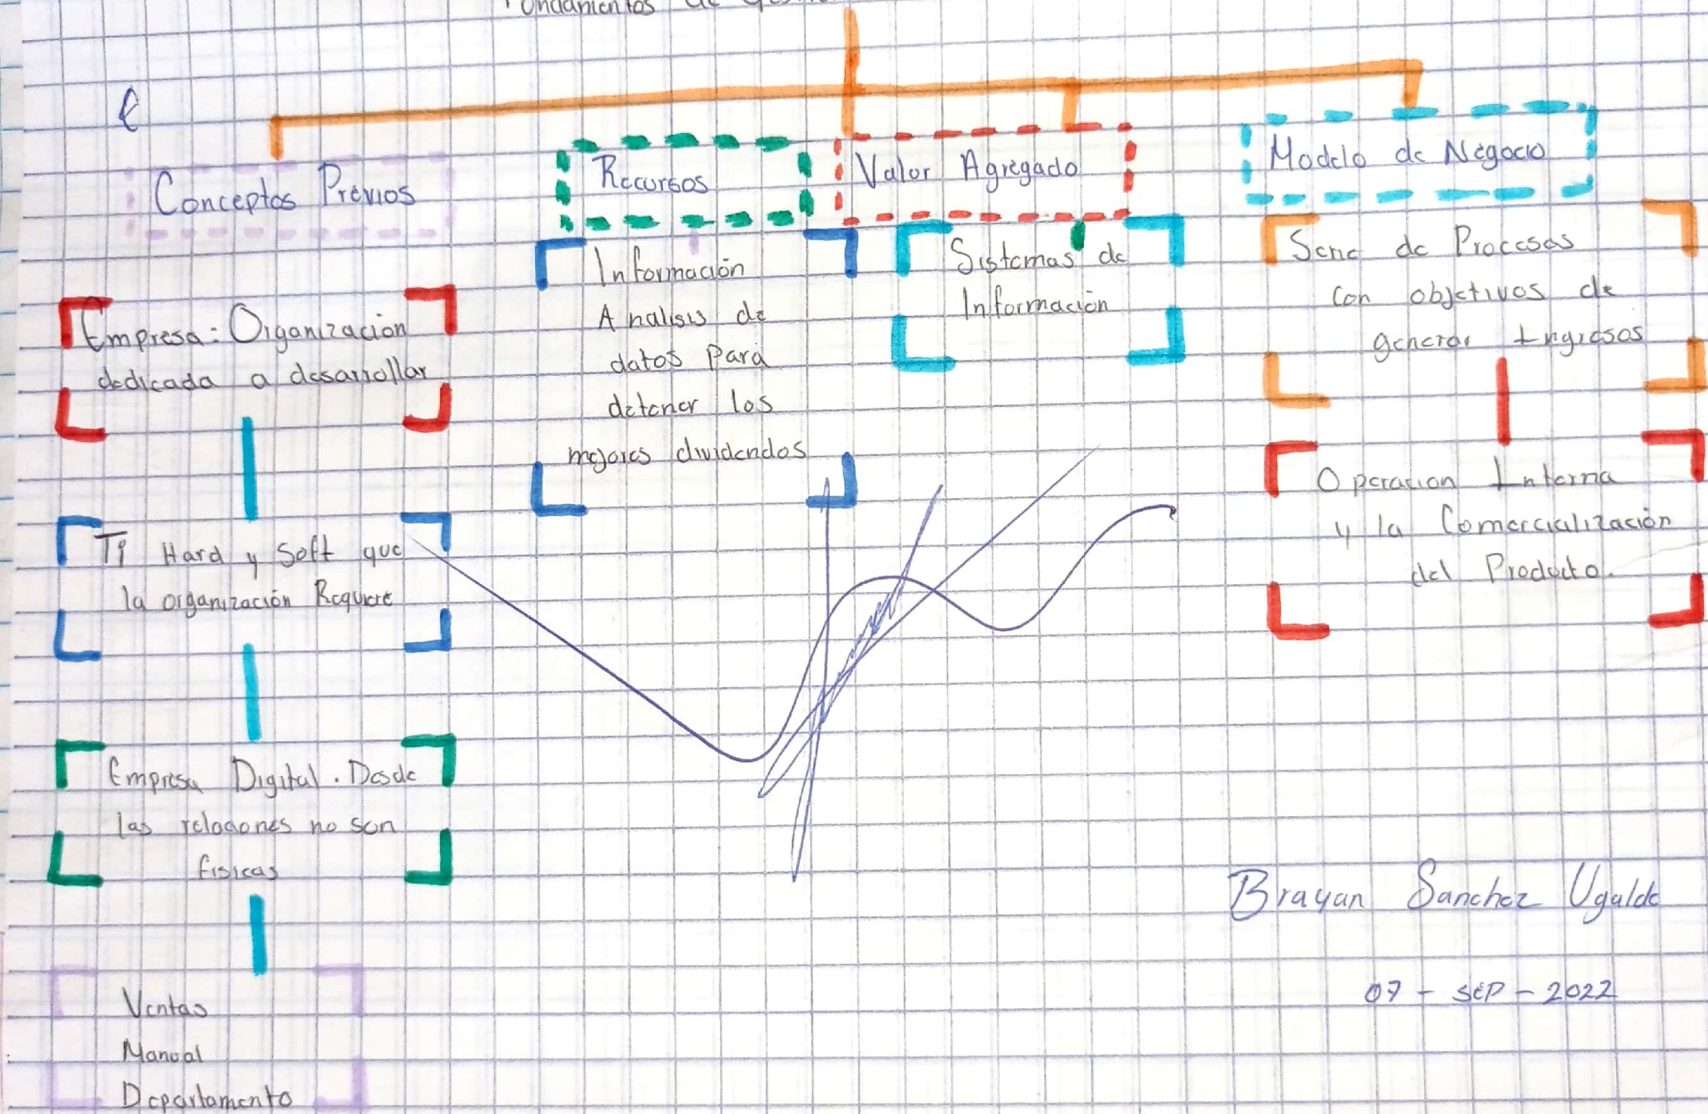 Fundamentos de
Conceptos Previos
Empresa: Organización
dedicada a desarrollar
TI Hard y Soft que
la organización Requiere
Empresa Digital. Desde
las relaciones no son
fisicas
Ventas
Manual
Departamento
Recursos
Información
Analisis de
datos Para
detener los
mejores dividendos
Valor Agregado
Sistemas de
Información
Modelo de Negocio
Serie de Procesos
Con objetivos de
generar Ingresos
Operacion Interna
y la Comercialización
del Producto.
Brayan Sanchez Ugalde
07 - SEP - 2022